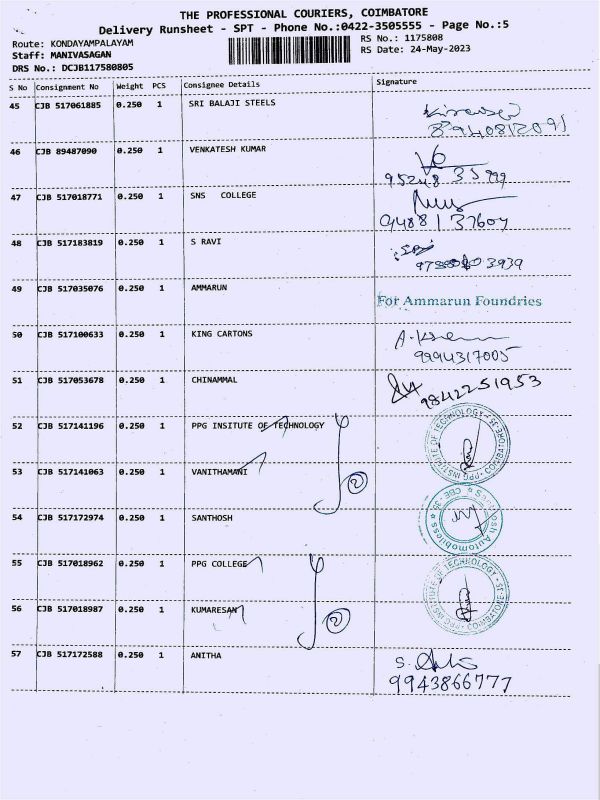 THE PROFESSIONAL COURIERS, COIMBATORE
Delivery Runsheet - SPT - Phone No.:0422-3505555 - Page No.:5
Route: KONDAYAMPALAYAM
RS No.: 1175808
Staff: MANIVASAGAN
RS Date: 24-May-2023
DRS No.: DCJB117580805
S No Consignment No Weight PCS Consignee Details Signature
45 CJB 517061885 0.250 1 SRI BALAJI STEELS
46 CJB 89487090 0.250 1 VENKATESH KUMAR
47 CJB 517018771 0.250 1 SNS COLLEGE
9488137604
48 CJB 517183819 0.250 1 S RAVI
49 CJB 517035076 0.250 1 AMMARUN
For Ammarun Foundries
50 CJB 517100633 0.250 1 KING CARTONS
9994317005
51 CJB 517053678 0.250 1 CHINAMMAL
9842251953
52 CJB 517141196 0.250 1 PPG INSITUTE OF TECHNOLOGY
PPG INSTITUTE OF TECHNOLOGY COIMBATORE-35
53 CJB 517141063 0.250 1 VANITHAMANI
2
54 CJB 517172974 0.250 1 SANTHOSH
Automobiless CBE - 35
55 CJB 517018962 0.250 1 PPG COLLEGE
PPG INSTITUTE OF TECHNOLOGY COIMBATORE-35
56 CJB 517018987 0.250 1 KUMARESAN
2
57 CJB 517172588 0.250 1 ANITHA
9943866777